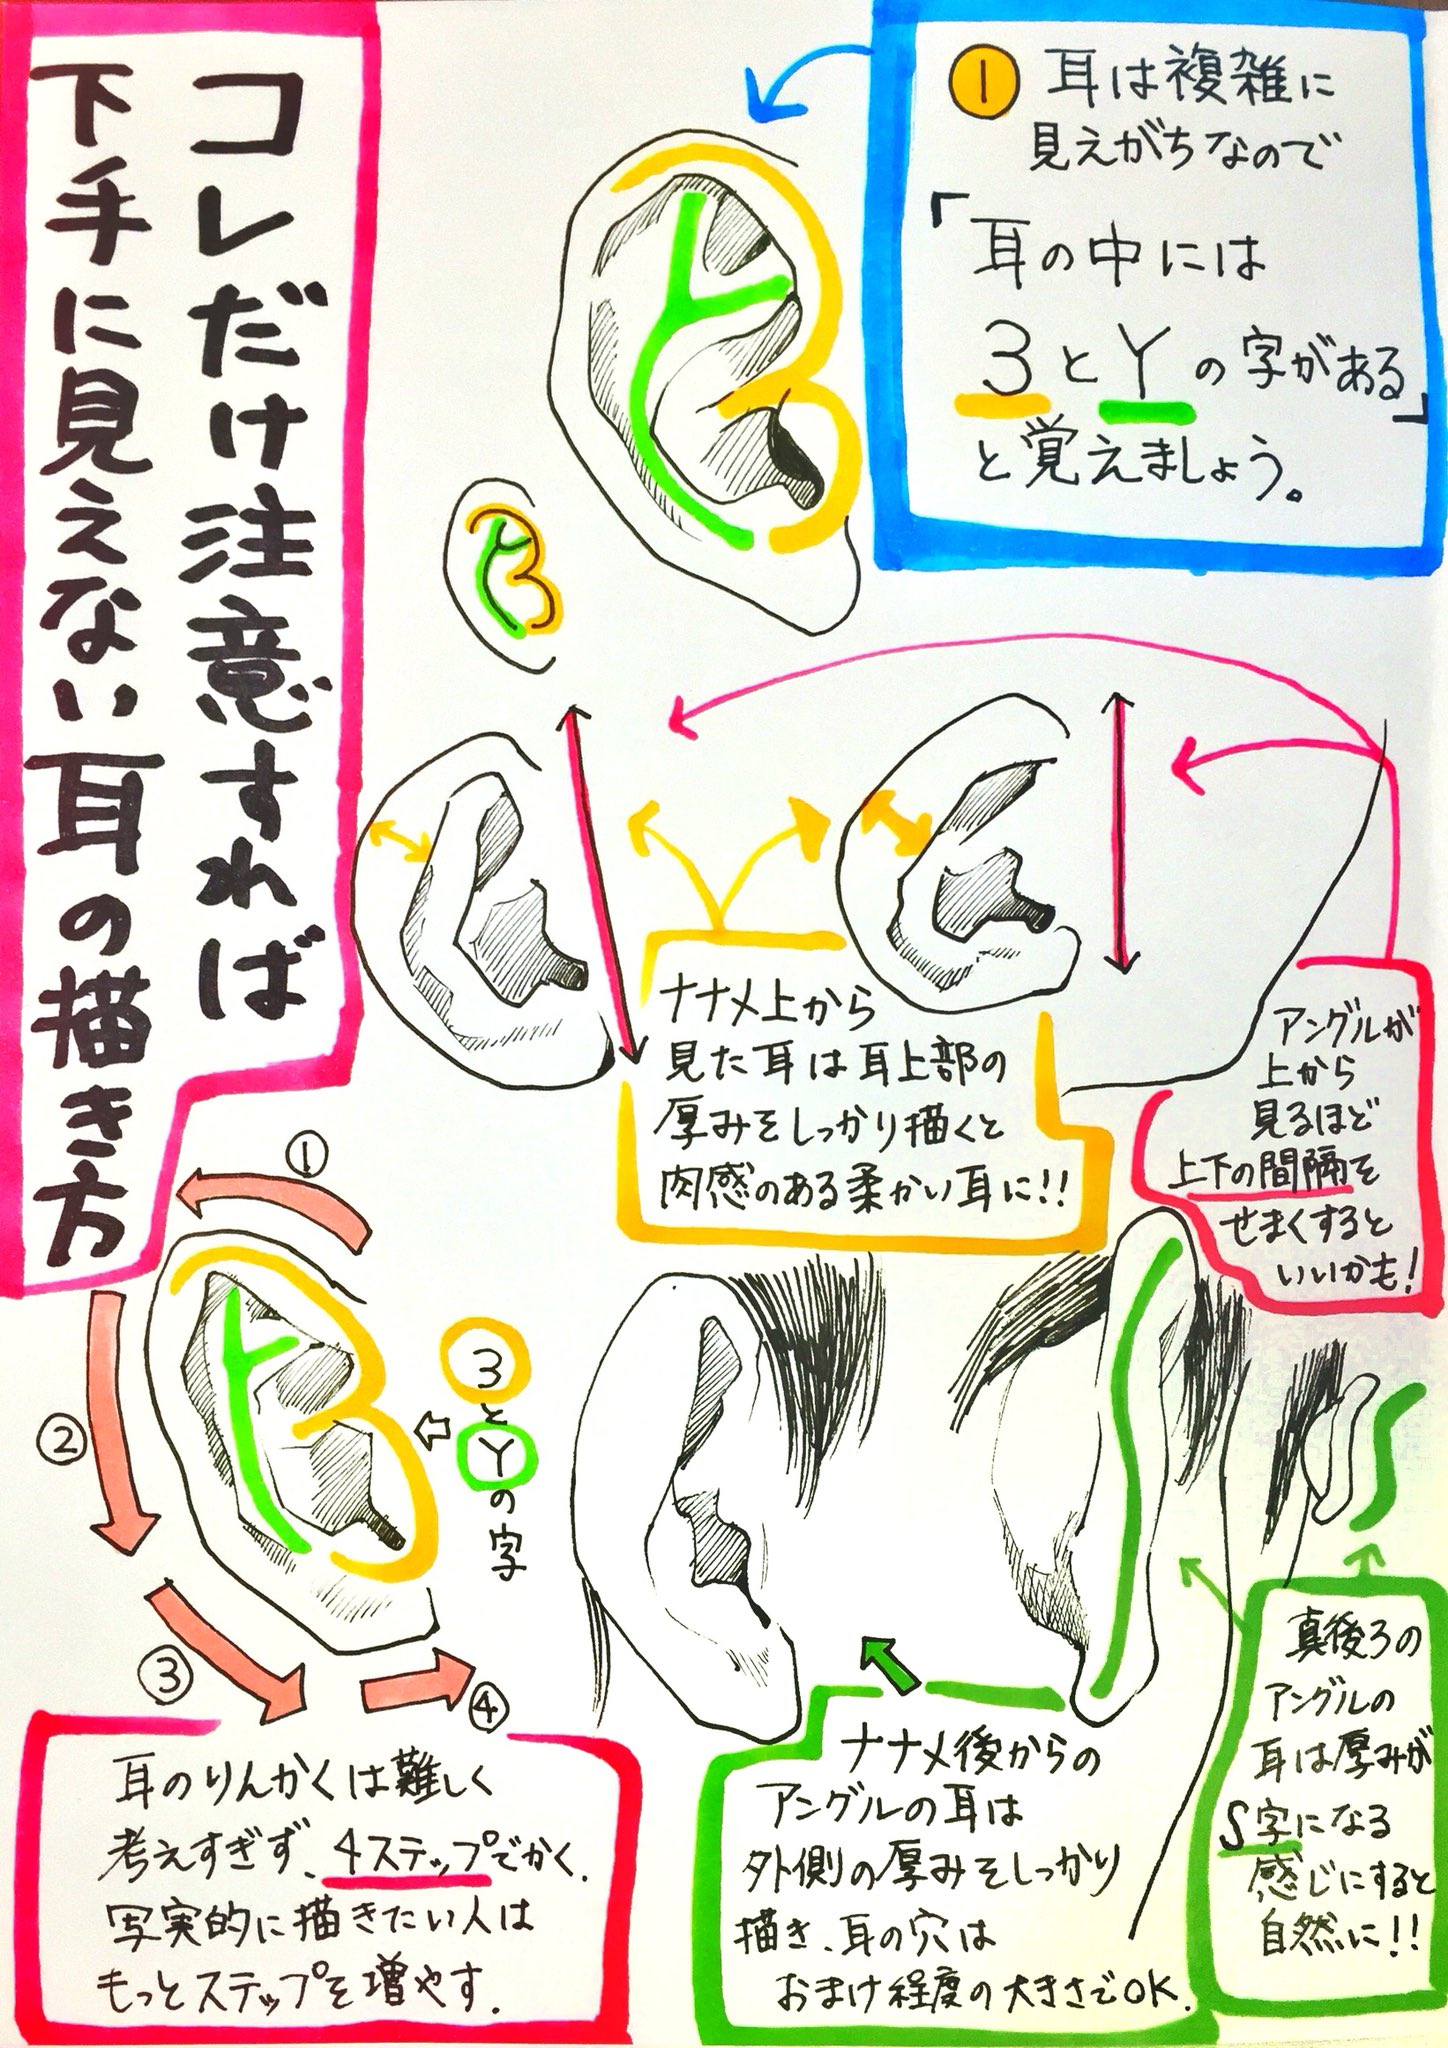 コレだけ注意すれば
下手に見えない耳の描き方
① 耳は複雑に
見えがちなので
「耳の中には
3とYの字がある」
と覚えましょう。
ナナメ上から
見た耳は耳上部の
厚みをしっかり描くと
肉感のある柔かい耳に!!
アングルが
上から
見るほど
上下の間隔を
せまくすると
いいかも!
①
②
③
④
3
と
Y
の
字
耳のりんかくは難しく
考えすぎず、4ステップでかく.
写実的に描きたい人は
もっとステップを増やす.
ナナメ後からの
アングルの耳は
外側の厚みをしっかり
描き、耳の穴は
おまけ程度の大きさでOK.
真後ろの
アングルの
耳は厚みが
S字になる
感じにすると
自然に!!